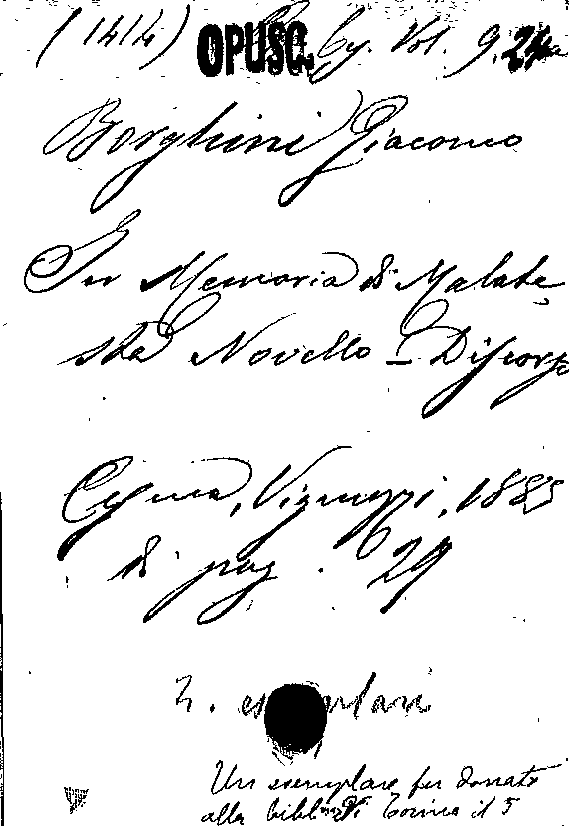 (1414) OPUSC. Cy. Vol. 9.
Borghini Giacomo
In Memoria di Malate
sta Novello - Discorso
Cesena, Vignuzzi, 1885
di pag. 29
2. esemplari
Un esemplare fu donato
alla bibl. di Torino il 5